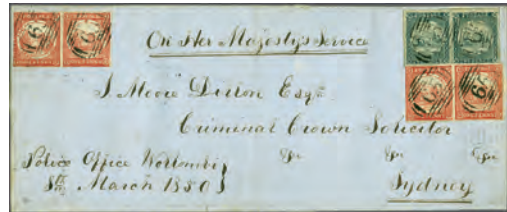 On Her Majesty's Service
S. Moore Dillon Esqre
Criminal Crown Solicitor
&c &c &c
Police Office Wollombi
8th March 1850
Sydney